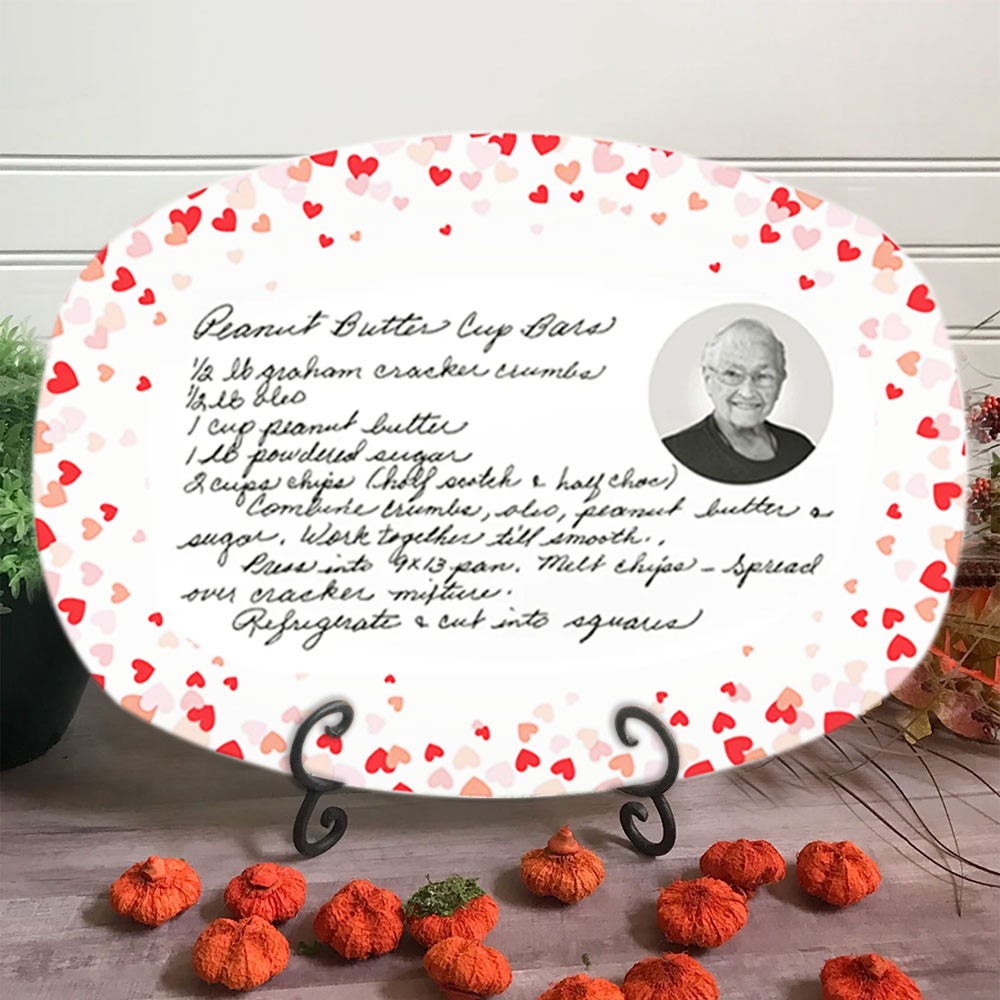 Peanut Butter Cup Bars
1/2 lb graham cracker crumbs
1/2 lb oleo
1 cup peanut butter
1 lb powdered sugar
2 cups chips (half scotch & half choc)
Combine crumbs, oleo, peanut butter &
sugar. Work together till smooth.
Press into 9x13 pan. Melt chips - Spread
over cracker mixture.
Refrigerate & cut into squares